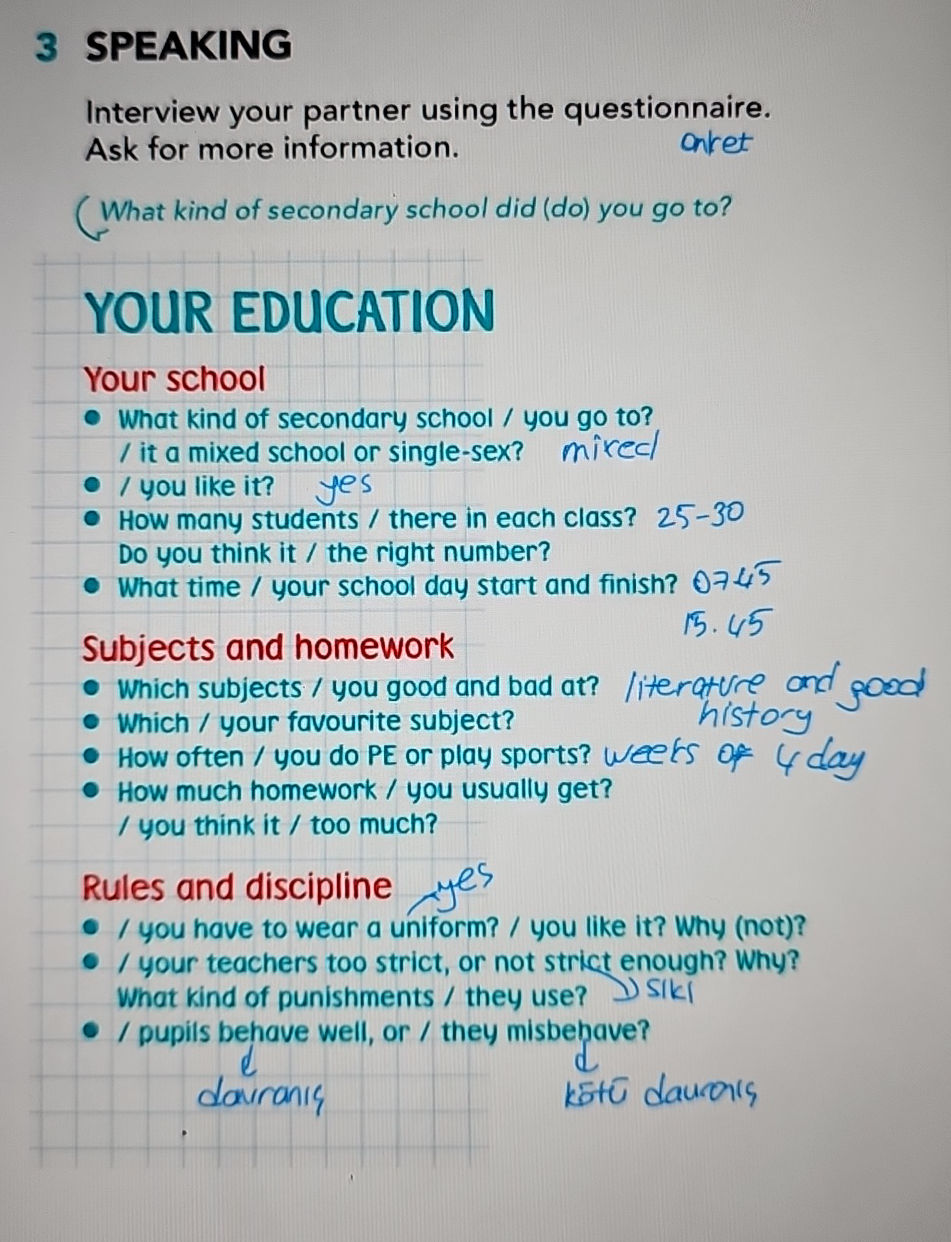 3 SPEAKING
Interview your partner using the questionnaire.
Ask for more information.
anket
What kind of secondary school did (do) you go to?
YOUR EDUCATION
Your school
• What kind of secondary school / you go to?
/ it a mixed school or single-sex? mixed
• / you like it? yes
• How many students / there in each class? 25-30
Do you think it / the right number?
• What time / your school day start and finish? 0745
15.45
Subjects and homework
• Which subjects / you good and bad at? literature and good
• Which / your favourite subject? history
• How often / you do PE or play sports? weeks of 4 day
• How much homework / you usually get?
/ you think it / too much?
Rules and discipline yes
• / you have to wear a uniform? / you like it? Why (not)?
• / your teachers too strict, or not strict enough? Why?
What kind of punishments / they use? sıkı
• / pupils behave well, or / they misbehave?
davranış kötü davranış